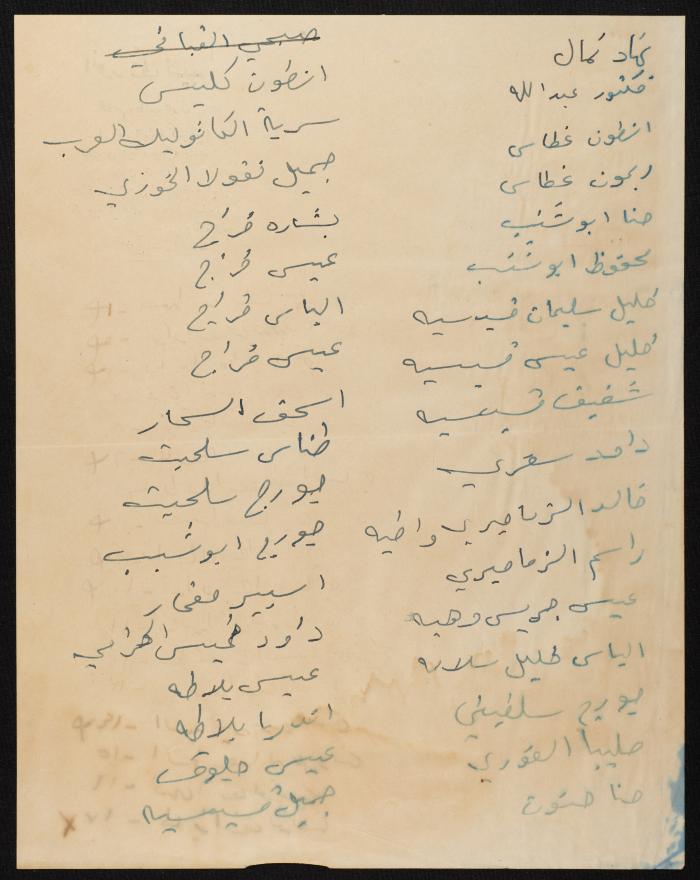 نهاد كمال
فكتور عبد الله
انطون غطاس
ريمون غطاس
حنا ابو شنب
محفوظ ابو شنب
خليل سليمان قسيسيه
خليل عيسى قسيسيه
شفيق قسيسيه
خالد الزماميري واخيه
راسم الزماميري
عيسى جريس وهبه
الياس خليل سلامه
جورج سلفيتي
صليبا الخوري
حنا حتوت
صبحي القباني
انطون كليس
سرية الكاثوليك العرب
جميل نقولا الخوري
بشاره فراج
عيسى فراج
الياس فراج
عيسى فراج
اسحق السحار
طناس سلحيت
جورج سلحيت
جورج ابو شنب
اسبير
داود خميس
عيسى بلاطه
اندريا بلاطه
عيسى حلوق
جميل قسيسيه